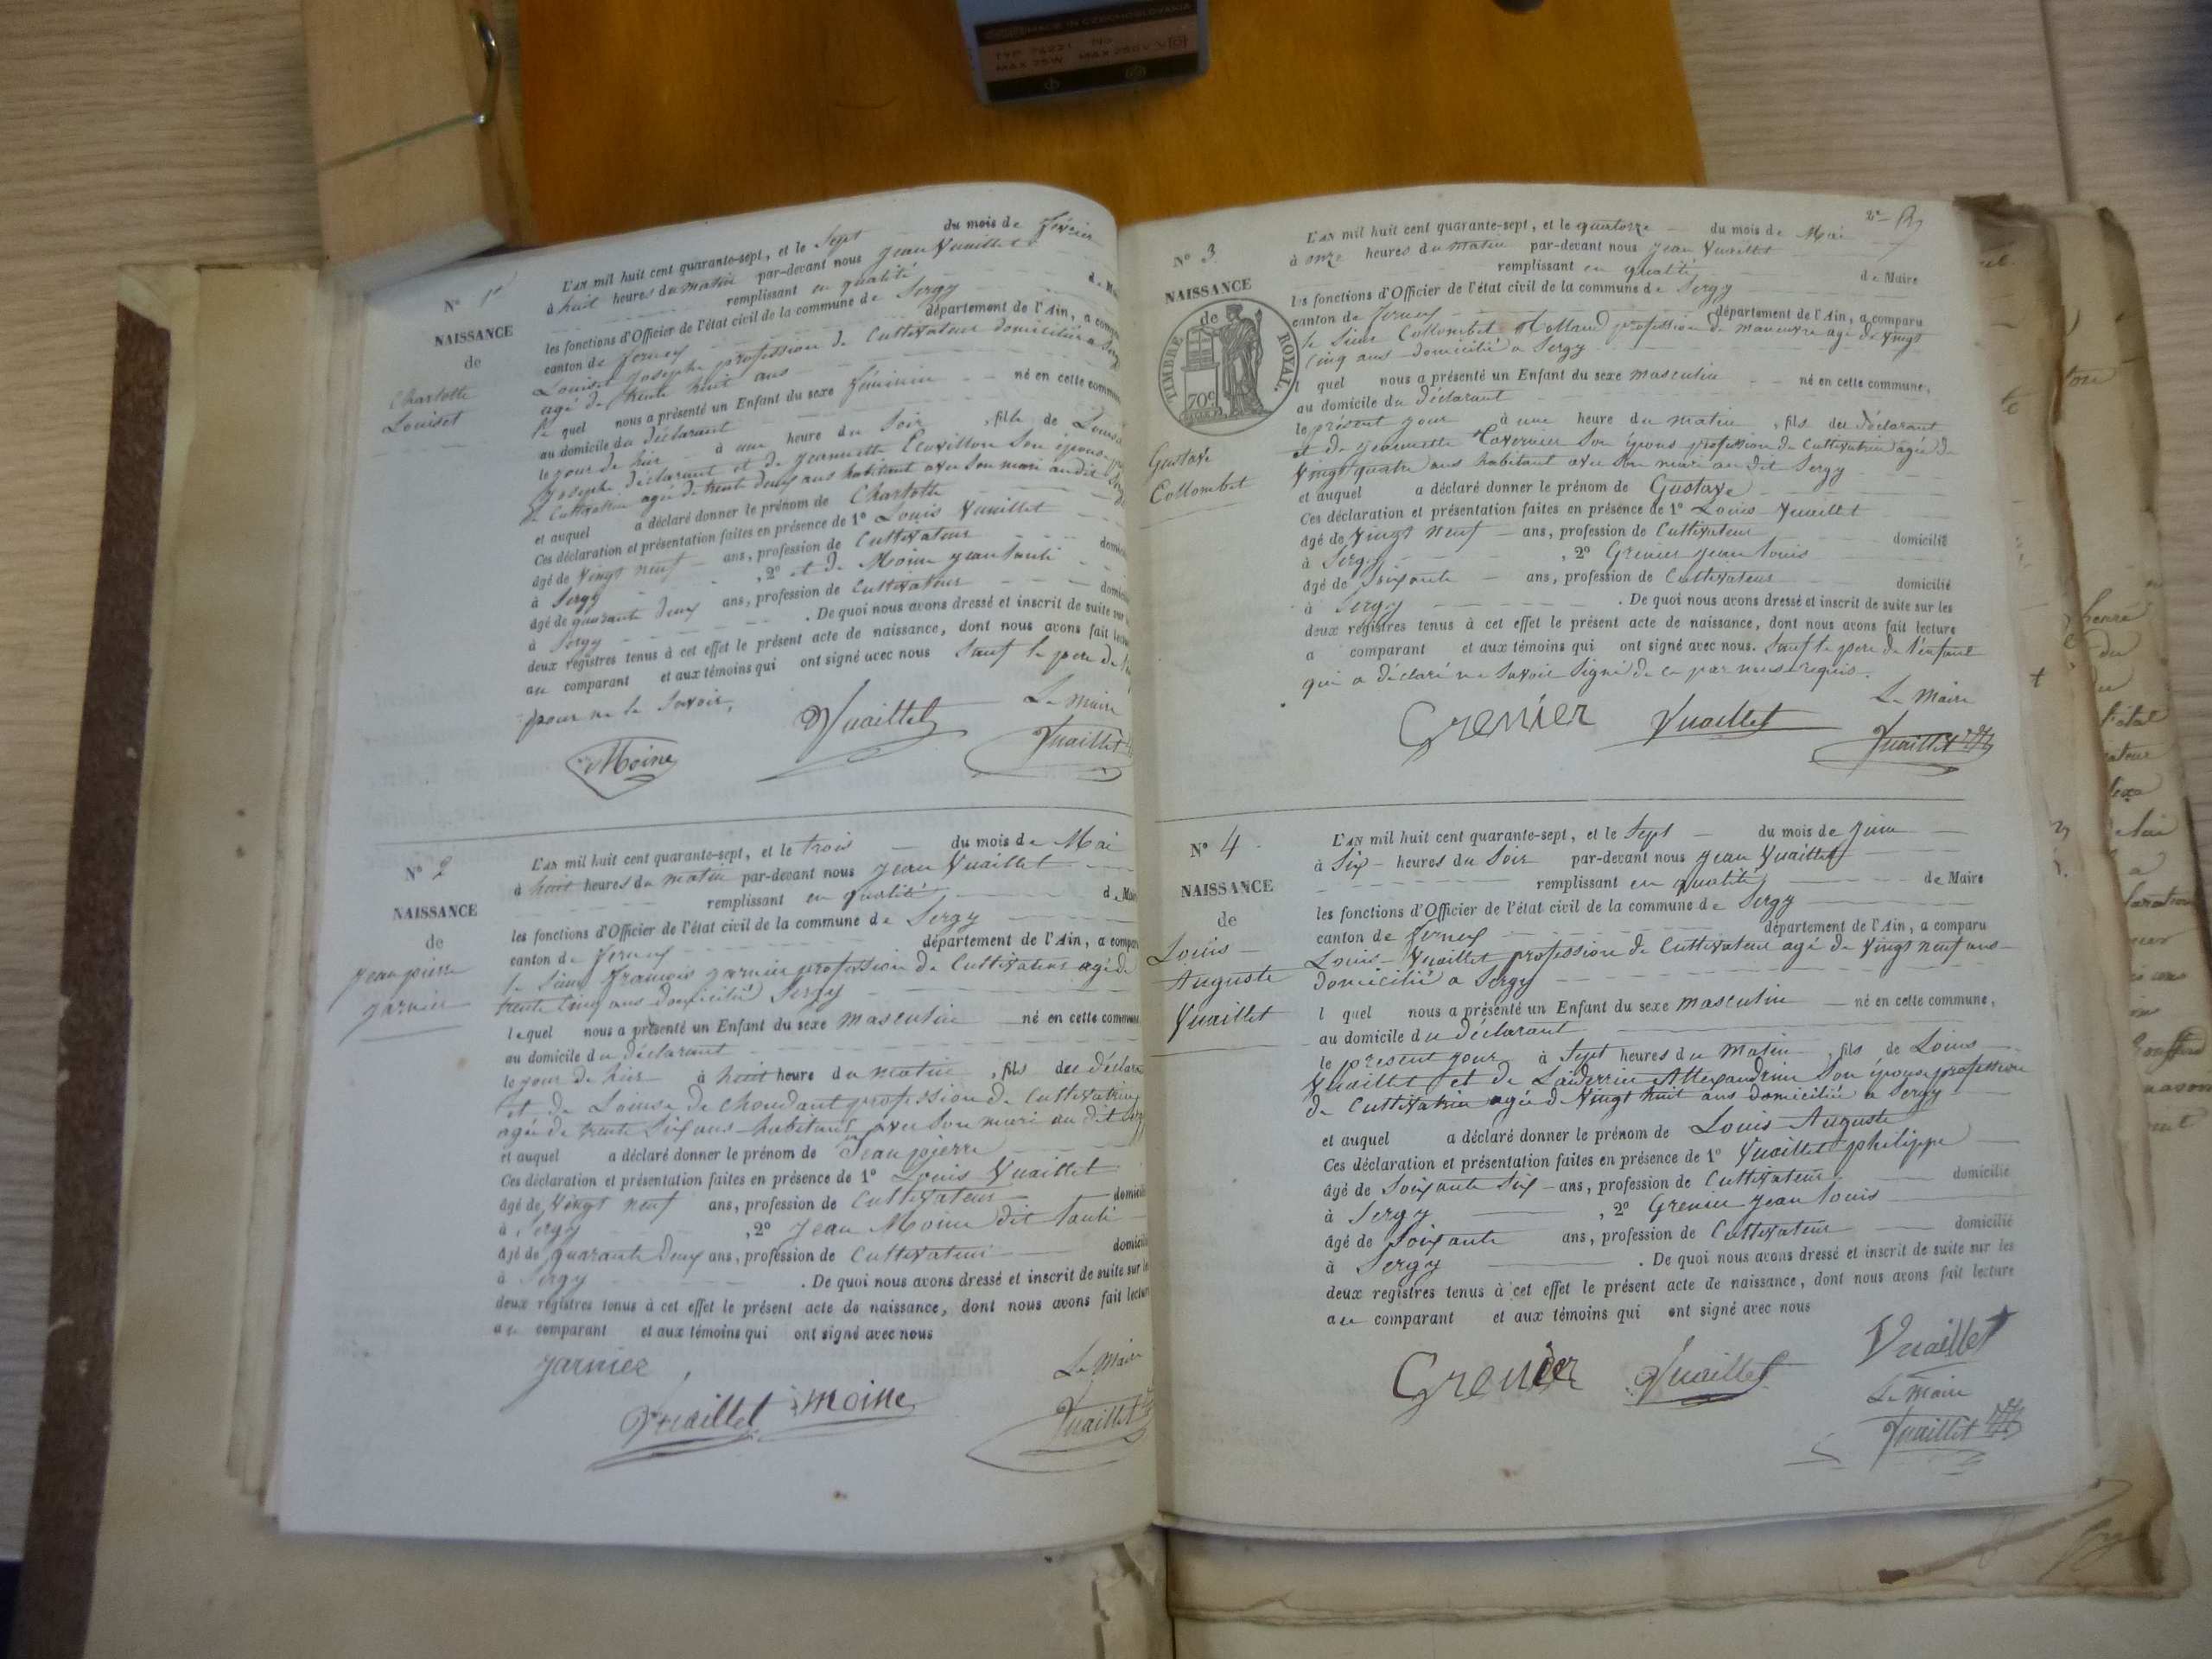 MADE IN CZECHOSLOVAKIA
TYP 74221 No
MAX 25W MAX 250V
N° 1er
NAISSANCE
de
Charlotte
Louiset
L'AN mil huit cent quarante-sept, et le Sept du mois de février
à huit heures du matin par-devant nous Jean Vuaillet
remplissant en qualité de Ma
les fonctions d'Officier de l'état civil de la commune de Sergy
canton de Ferney département de l'Ain, a compa
Louiset Josephe profession de Cultivateur domicilié a Sergy
agé de trente huit ans
le quel nous a présenté un Enfant du sexe féminin né en cette commune
au domicile du déclarant
le jour de hier à une heure du Soir, fille de Louiset
Josephe déclarant et de Jeannette Ecuvillon Son épouse
de Cultivatrice agée de trente deux ans habitant avec Son mari audit Sergy
et auquel a déclaré donner le prénom de Charlotte
Ces déclaration et présentation faites en présence de 1° Louis Vuaillet
âgé de vingt neuf ans, profession de Cultivateur domici
à Sergy, 2° et de Moine Jean
âgé de quarante deux ans, profession de Cultivateur domici
à Sergy. De quoi nous avons dressé et inscrit de suite sur
deux registres tenus à cet effet le présent acte de naissance, dont nous avons fait lecture
au comparant et aux témoins qui ont signé avec nous Sauf le pere de
pour ne le Savoir,
Le Maire
Moine Vuaillet Vuaillet
N° 2
NAISSANCE
de
Jean pierre
Garnier
L'AN mil huit cent quarante-sept, et le trois du mois de Mai
à huit heures du matin par-devant nous Jean Vuaillet
remplissant en qualité de Maire
les fonctions d'Officier de l'état civil de la commune de Sergy
canton de Ferney département de l'Ain, a compar
le Sieur François Garnier profession de Cultivateur agé de
trente cinq ans domicilié Sergy
lequel nous a présenté un Enfant du sexe masculin né en cette commune
au domicile du déclarant
le jour de hier à huit heure du matin, fils du déclara
et de Louise de Choudant profession de Cultivatrice
agée de trente Six ans habitant avec Son mari au dit Sergy
et auquel a déclaré donner le prénom de Jean pierre
Ces déclaration et présentation faites en présence de 1° Louis Vuaillet
âgé de vingt neuf ans, profession de Cultivateur domicilié
à Sergy, 2° Jean Moine dit
âgé de quarante deux ans, profession de Cultivateur domicilié
à Sergy. De quoi nous avons dressé et inscrit de suite sur les
deux registres tenus à cet effet le présent acte de naissance, dont nous avons fait lecture
au comparant et aux témoins qui ont signé avec nous
garnier Le Maire
Vuaillet moine Vuaillet
2e
N° 3
NAISSANCE
de
TIMBRE ROYAL.
70c
Gustave
Collombet
L'AN mil huit cent quarante-sept, et le quatorze du mois de Mai
à onze heures du matin par-devant nous Jean Vuaillet
remplissant en qualité de Maire
les fonctions d'Officier de l'état civil de la commune de Sergy
canton de Ferney département de l'Ain, a comparu
le Sieur Collombet Rolland profession de manœuvre agé de vingt
cinq ans domicilié a Sergy
l quel nous a présenté un Enfant du sexe masculin né en cette commune,
au domicile du déclarant
le présent jour à une heure du matin, fils du déclarant
et de Jeannette Tavernier Son épouse profession de Cultivatrice agée de
vingt quatre ans habitant avec Son mari au dit Sergy
et auquel a déclaré donner le prénom de Gustave
Ces déclaration et présentation faites en présence de 1° Louis Vuaillet
âgé de vingt neuf ans, profession de Cultivateur domicilié
à Sergy, 2° Grenier Jean Louis
âgé de Soixante ans, profession de Cultivateur domicilié
à Sergy. De quoi nous avons dressé et inscrit de suite sur les
deux registres tenus à cet effet le présent acte de naissance, dont nous avons fait lecture
a comparant et aux témoins qui ont signé avec nous. Sauf le pere de l'enfant
qui a déclaré ne Savoir Signé de ce par nous requis.
Le Maire
Grenier Vuaillet Vuaillet
N° 4
NAISSANCE
de
Louis
Auguste
Vuaillet
L'AN mil huit cent quarante-sept, et le Sept du mois de Juin
à Six heures du Soir par-devant nous Jean Vuaillet
remplissant en qualité de Maire
les fonctions d'Officier de l'état civil de la commune de Sergy
canton de Ferney département de l'Ain, a comparu
Louis Vuaillet profession de Cultivateur agé de vingt neuf ans
domicilié a Sergy
l quel nous a présenté un Enfant du sexe masculin né en cette commune,
au domicile du déclarant
le présent jour à Sept heures du Matin, fils de Louis
Vuaillet et de Landerrin Allexandrine Son épouse profession
de Cultivatrice agée de Vingt huit ans domiciliée a Sergy
et auquel a déclaré donner le prénom de Louis Auguste
Ces déclaration et présentation faites en présence de 1° Vuaillet philippe
âgé de Soixante Six ans, profession de Cultivateur domicilié
à Sergy, 2° Grenier Jean Louis
âgé de Soixante ans, profession de Cultivateur domicilié
à Sergy. De quoi nous avons dressé et inscrit de suite sur les
deux registres tenus à cet effet le présent acte de naissance, dont nous avons fait lecture
au comparant et aux témoins qui ont signé avec nous
Vuaillet
Grenier Vuaillet Le Maire
Vuaillet